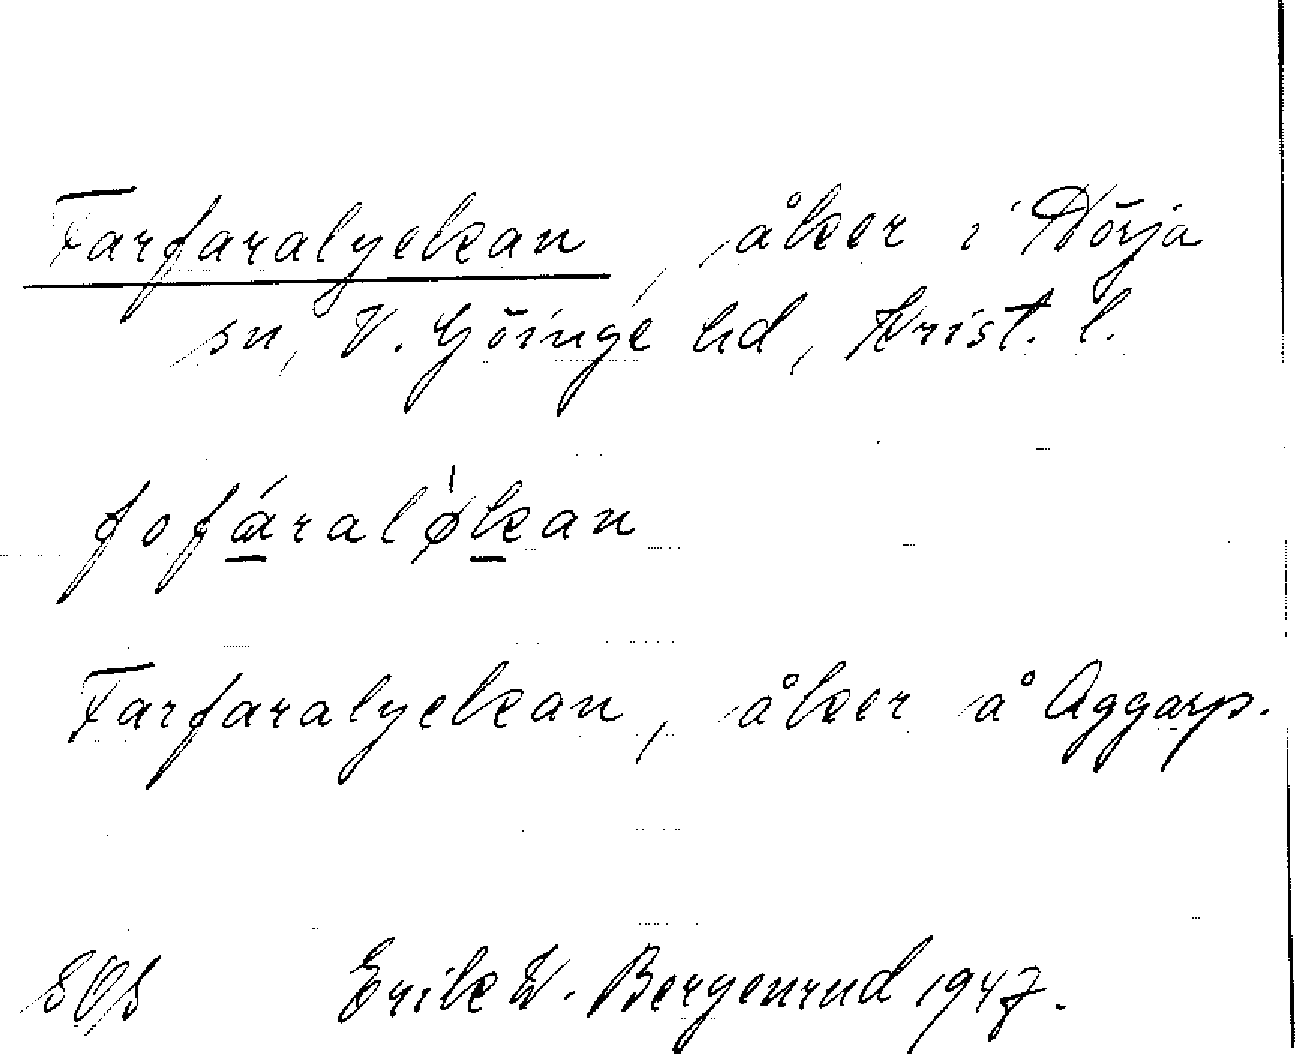 Farfaralyckan, åker i Hörja
sn, V. Göinge hd, Krist. l.
fofáralø̍kan
Farfaralyckan, åker å Aggarp.
SOS Erik W. Bergenrud 1947.